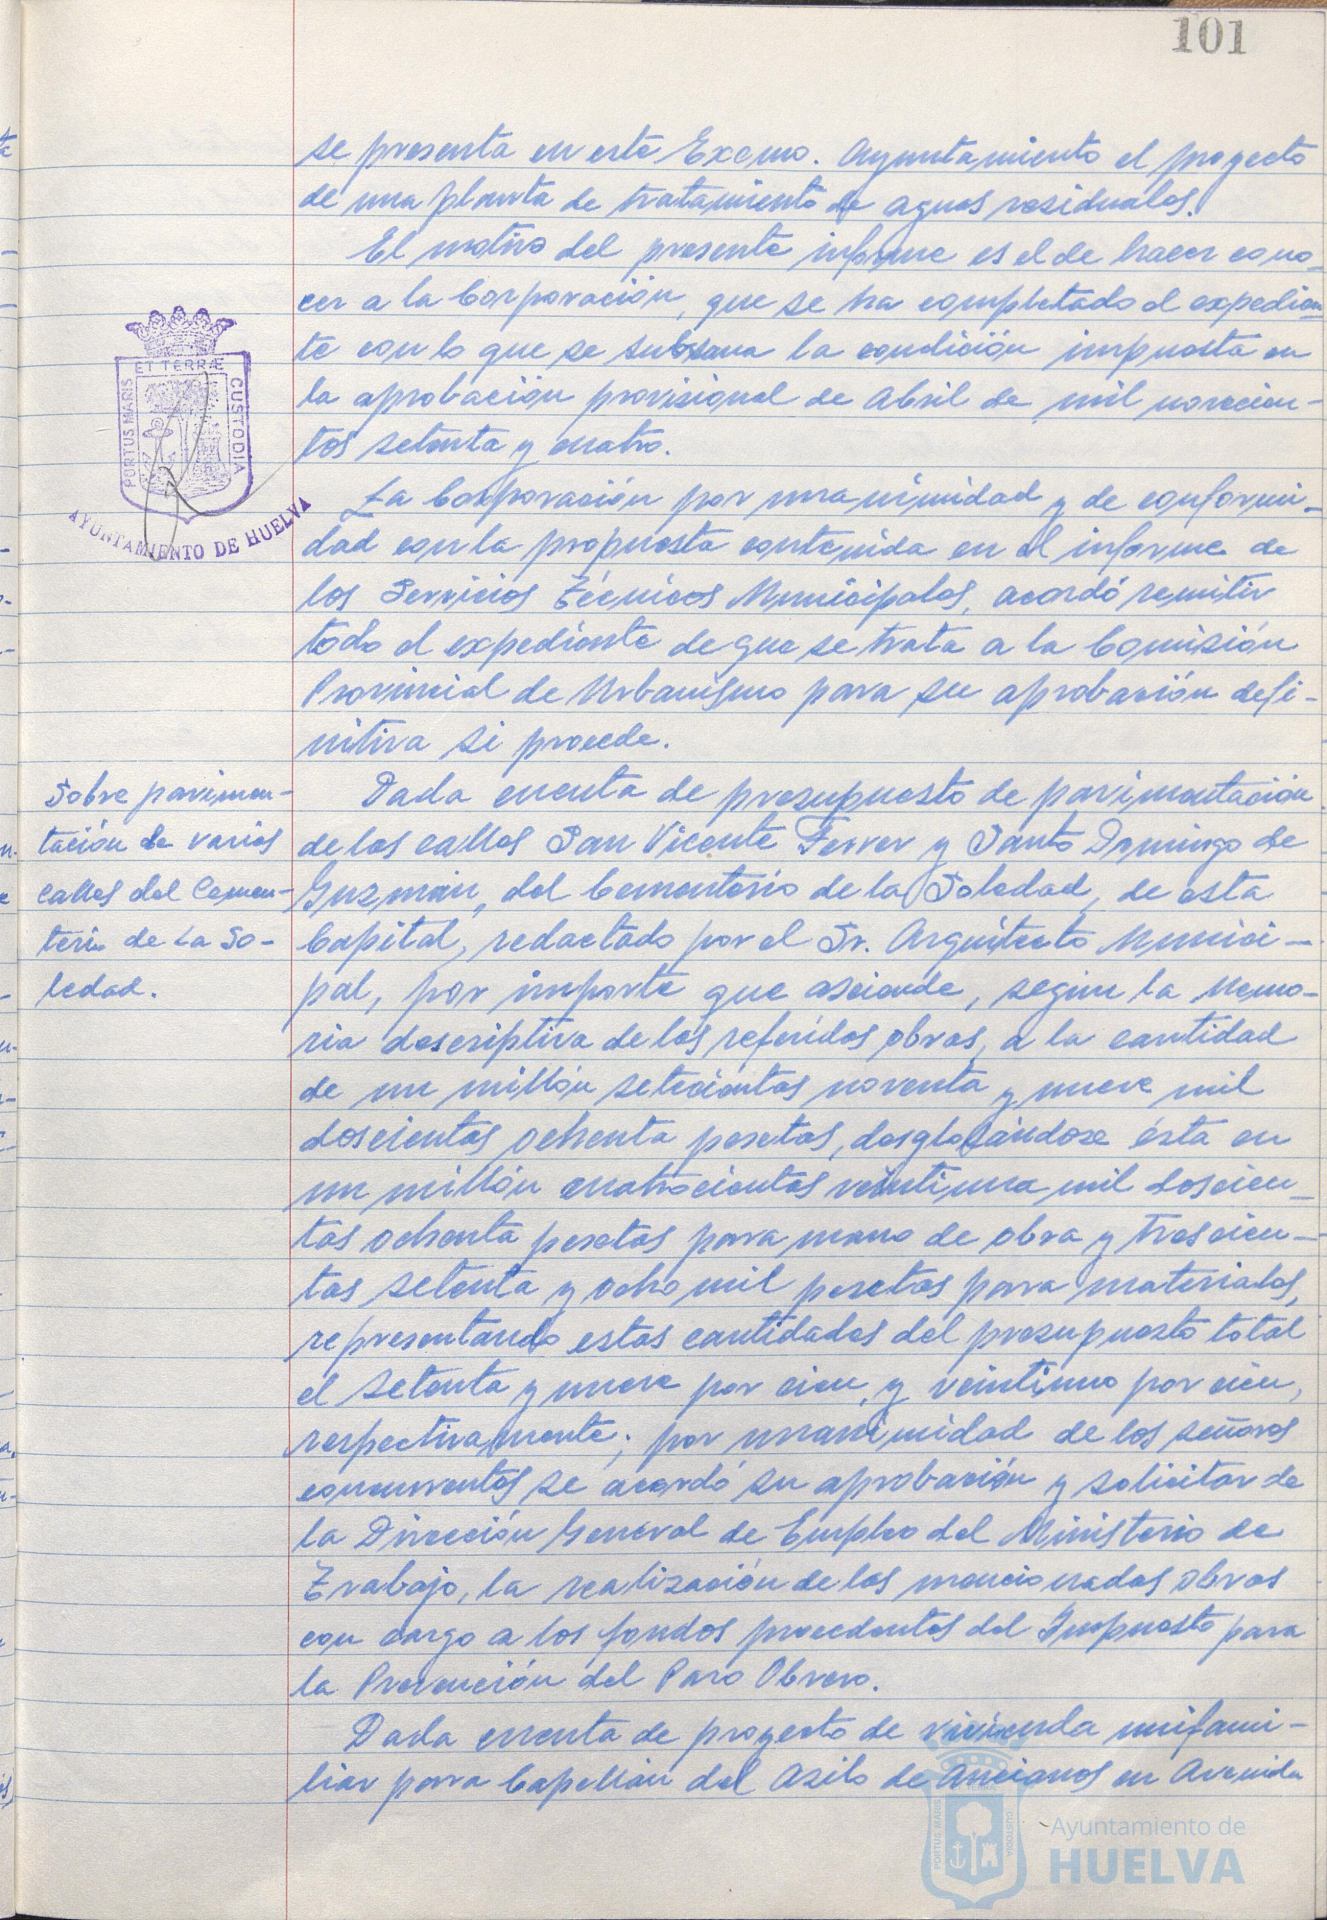 101
se presenta en este Excmo. Ayuntamiento el proyecto
de una planta de tratamiento de aguas residuales.
El motivo del presente informe es el de hacer cono-
cer a la Corporación, que se ha completado el expedien-
te con lo que se subsana la condición impuesta en
la aprobación provisional de Abril de mil novecien-
tos setenta y cuatro.
La Corporación por unanimidad y de conformi-
dad con la propuesta contenida en el informe de
los Servicios Técnicos Municipales, acordó remitir
todo el expediente de que se trata a la Comisión
Provincial de Urbanismo para su aprobación defi-
nitiva si procede.
PORTUS MARIS ET TERRÆ CUSTODIA
AYUNTAMIENTO DE HUELVA
Sobre pavimen-
tación de varias
calles del Cemen-
terio de La So-
ledad.
Dada cuenta de presupuesto de pavimentación
de las calles San Vicente Ferrer y Santo Domingo de
Guzmán, del Cementerio de la Soledad, de esta
Capital, redactado por el Sr. Arquitecto Munici-
pal, por importe que asciende, según la Memo-
ria descriptiva de las referidas obras, a la cantidad
de un millón setecientas noventa y nueve mil
doscientas ochenta pesetas, desglosándose ésta en
un millón cuatrocientas veintiuna mil doscien-
tas ochenta pesetas para mano de obra y trescien-
tas setenta y ocho mil pesetas para materiales,
representando estas cantidades del presupuesto total
el setenta y nueve por cien, y veintiuno por cien,
respectivamente; por unanimidad de los señores
concurrentes se acordó su aprobación y solicitar de
la Dirección General de Empleo del Ministerio de
Trabajo, la realización de las mencionadas obras
con cargo a los fondos procedentes del Impuesto para
la Prevención del Paro Obrero.
Dada cuenta de proyecto de vivienda unifami-
liar para Capellán del Asilo de Ancianos en Avenida
PORTUS MARIS CUSTODIA
Ayuntamiento de
HUELVA